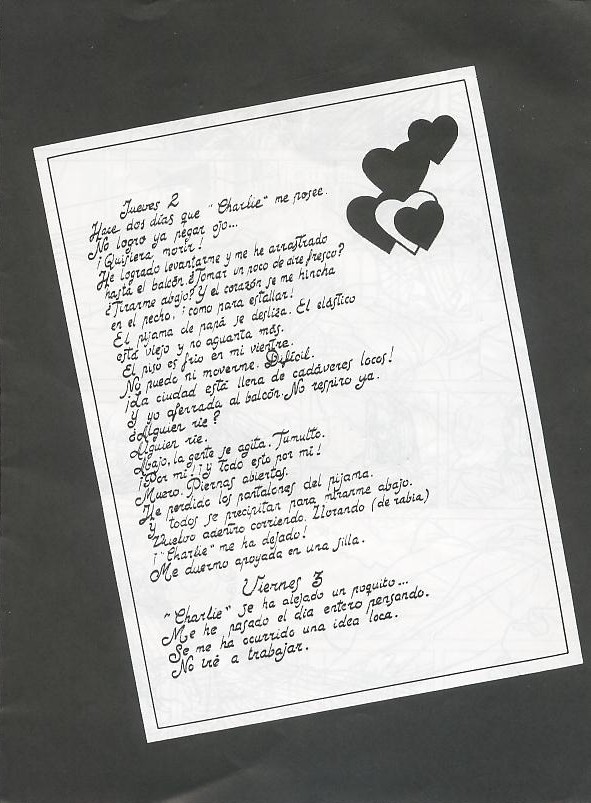 Jueves 2
Hace dos días que "Charlie" me posee.
No logro ya pegar ojo...
¡Quisiera morir!
He logrado levantarme y me he arrastrado
hasta el balcón. ¿Tomar un poco de aire fresco?
¿Tirarme abajo? Y el corazón se me hincha
en el pecho, ¡como para estallar!
El pijama de papá se desliza. El elástico
está viejo y no aguanta más.
El piso es frio en mi vientre.
No puedo ni moverme. Difícil.
¡La ciudad está llena de cadáveres locos!
Y yo aferrada al balcón. No respiro ya.
¿Alguien rie?
Alguien rie.
Abajo, la gente se agita. Tumulto.
¡Por mi! ¡Y todo esto por mi!
Muero. Piernas abiertas.
He perdido los pantalones del pijama.
Y todos se precipitan para mirarme abajo.
Vuelvo adentro corriendo. Llorando (de rabia)
¡"Charlie" me ha dejado!
Me duermo apoyada en una silla.
Viernes 3
"Charlie" se ha alejado un poquito...
Me he pasado el día entero pensando.
Se me ha ocurrido una idea loca.
No iré a trabajar.